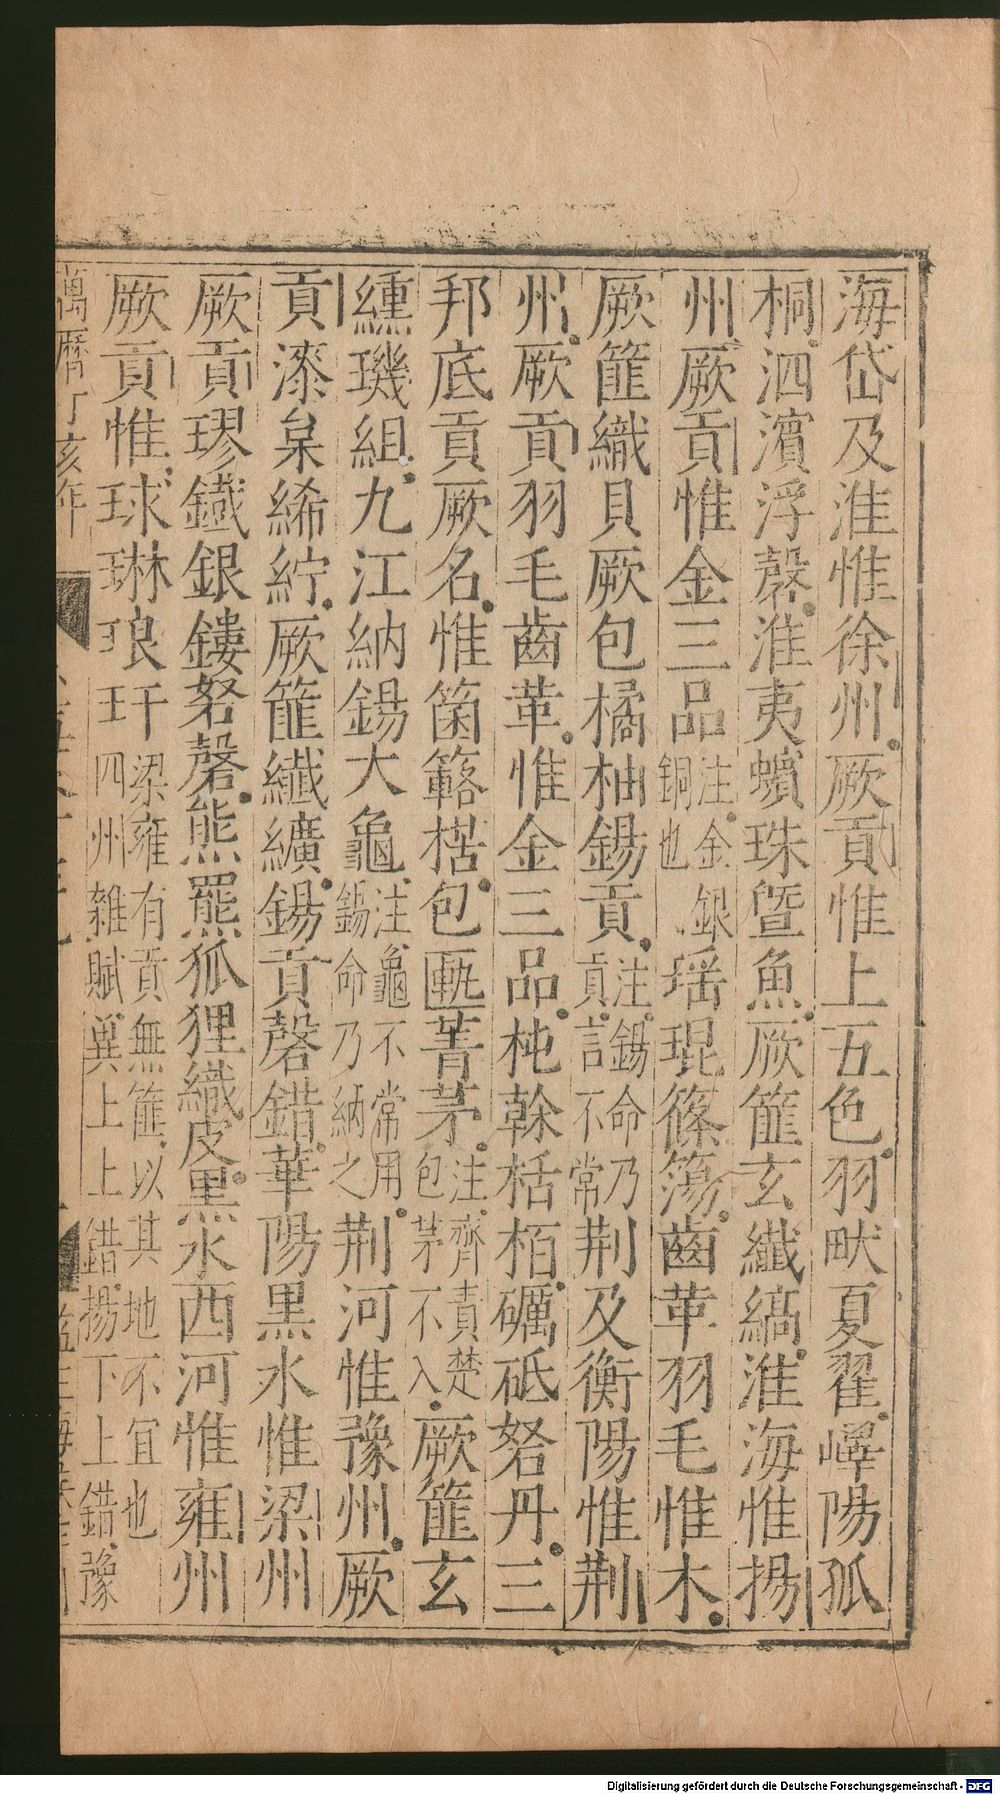 海岱及淮惟徐州厥貢惟上五色羽畎夏翟嶧陽孤
桐泗濱浮磬淮夷蠙珠曁魚厥篚玄纖縞淮海惟揚
州厥貢惟金三品注金銀銅也瑶琨篠簜齒革羽毛惟木
厥篚織貝厥包橘柚錫貢注錫命乃貢言不常荆及衡陽惟荆
州厥貢羽毛齒革惟金三品杶榦栝栢礪砥砮丹三
邦底貢厥名惟箘簵楛包匭菁茅注齊責楚包茅不入厥篚玄
纁璣組九江納錫大龜注龜不常用錫命乃納之荆河惟豫州厥
貢漆枲絺紵厥篚纖纊錫貢磬錯華陽黒水惟梁州
厥貢璆鐵銀鏤砮磬熊羆狐狸織皮黒水西河惟雍州
厥貢惟球琳琅玕梁雍有貢無篚以其地不宜也四州雜賦兾上上錯揚下上錯豫
萬曆丁亥年
Digitalisierung gefördert durch die Deutsche Forschungsgemeinschaft - DFG